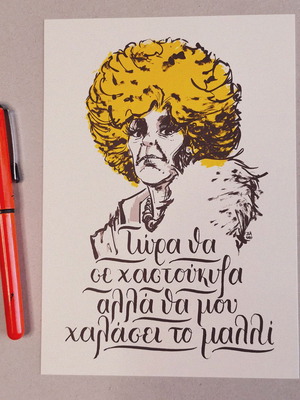 Τώρα θα
σε χαστούκιζα
αλλά θα μου
χαλάσει το μαλλί